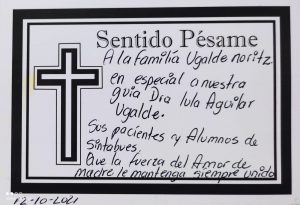 Sentido Pésame
A la familia Ugalde noritz.
en especial a nuestra
guia Dra lula Aguilar
Ugalde.
Sus pacientes y Alumnos de
Sintabues.
Que la fuerza del Amor de
madre le mantenga siempre unida
12-10-2021